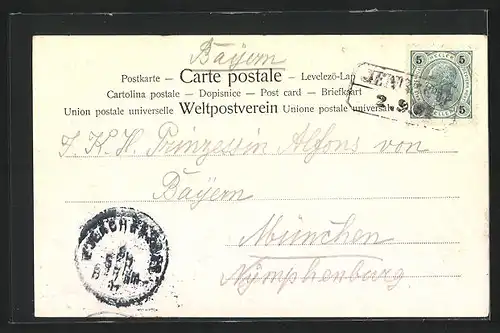 Bayern
Postkarte – Carte postale – Levelezö-Lap
Cartolina postale – Dopisnice – Post card – Briefkaart
Union postale universelle Weltpostverein Unione postale universale
5 5
5 5
I. K. H. Prinzessin Alfons von
Bayern
München
Nymphenburg